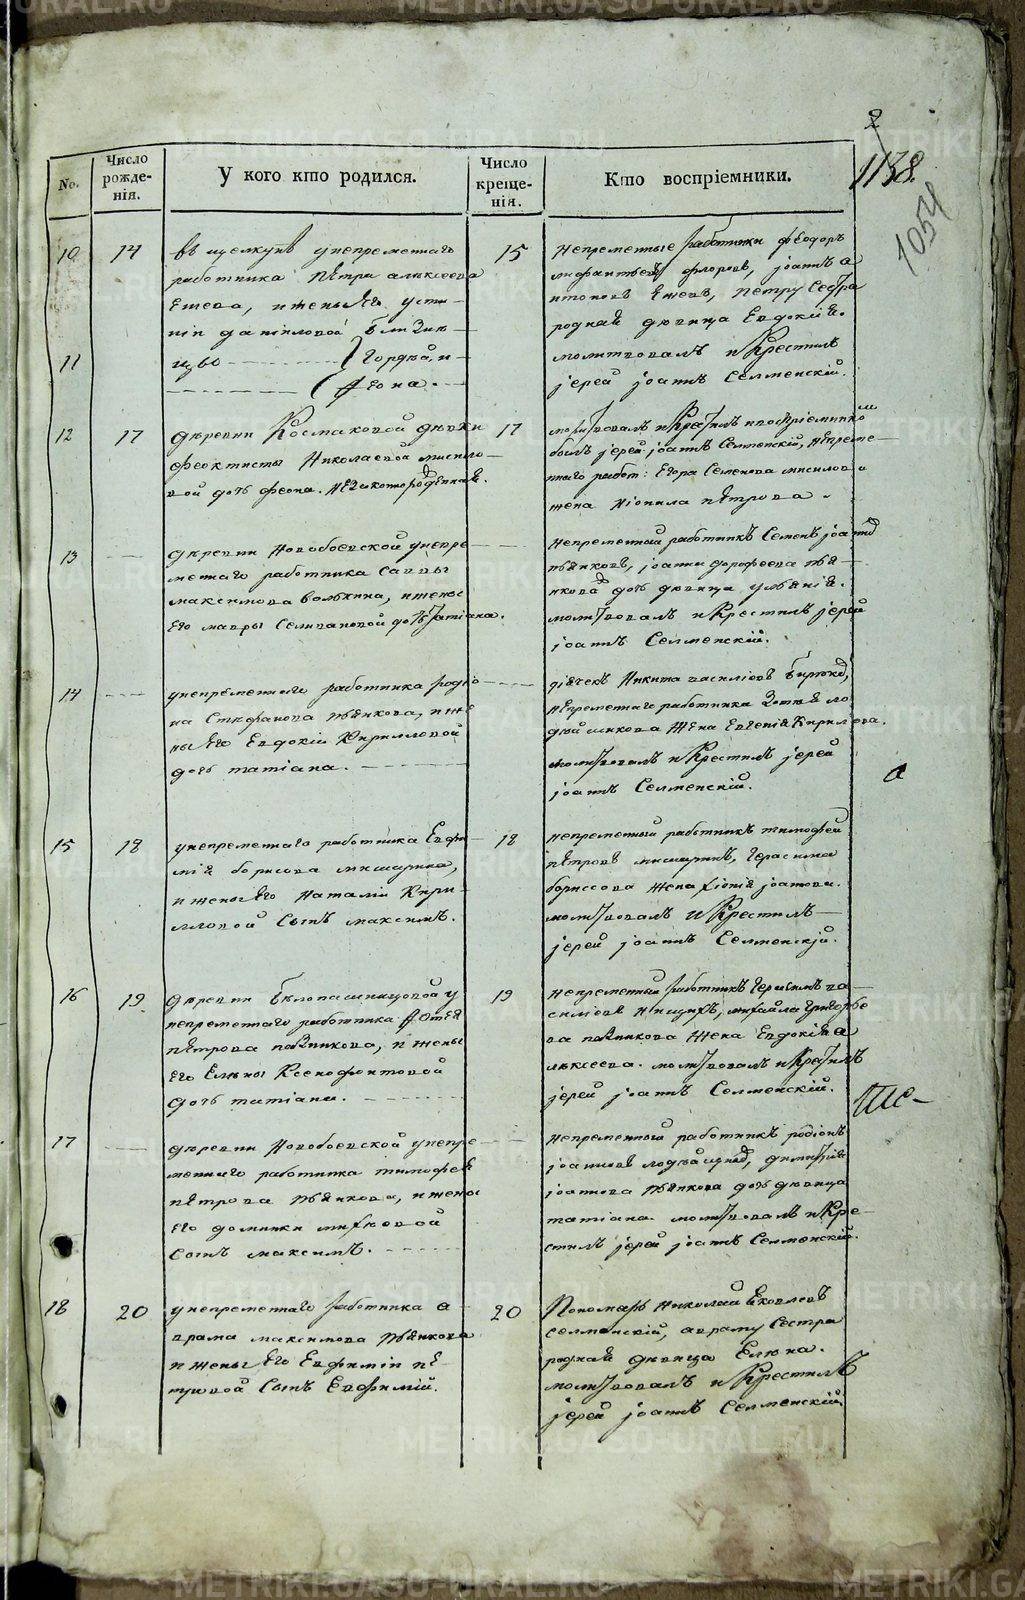 METRIKI.GASO-URAL.RU
2
1138.
1054
No.
Число рожде-нія.
У кого кто родился.
Число креще-нія.
Кто воспріемники.
10 14
въ щелкунѣ унепременнаго
работника Петра алексеева
Ежева, ижены его усти-
ніи даніиловой близне-
11 цы Гордѣй, и
Агона.
15
непременные работники феодоръ
флоровъ, іоаннъ а
нтоновъ Ежевъ, Петру Сестра
родная девица Евдокія.
молитвовалъ и Крестилъ
іерей іоаннъ Селменскій.
12 17
деревни Космаковой девки
феоктисты Николаевой
вой дочь феона. незаконорожденная.
17
молитвовалъ и Крестилъ ивоспріемникомъ
былъ іерей іоаннъ Селменскій, непреме-
ннаго работ: Егора Семенова
жена Неонила петрова.
13
деревни Новобоевской унепре-
меннаго работника Саввы
максимова волкина, ижены
его мавры Селивановой дочь татіана.
непременный работникъ Семенъ іоанно
пьянковъ, іоанна дорофеева пья-
нкова дочь девица уліянія.
молитвовалъ и Крестилъ іерей
іоаннъ Селменскій.
14
унепременнаго работника родіо-
на Стефанова пьянкова, иже
ны его Евдокіи Кирилловой
дочь татіана.
дьячекъ Никита василіовъ Бирюко,
непременнаго работника Зотия ло
жена Евгенія Кирилова.
молитвовалъ и Крестилъ іерей
іоаннъ Селменскій.
а
15 18
унепременнаго работника Евфи-
мія борисова мишарина,
ижены его Наталіи Кири-
лловой Сынъ максимъ.
18
непременный работникъ тимофей
петровъ мишаринъ, герасима
борисова жена Хіонія іоанова.
молитвовалъ и Крестилъ
іерей іоаннъ Селменскій.
16 19
деревни у
непременнаго работника Фотея
петрова паздникова, и жены
его Елены Ксенофонтовой
дочь татіана.
19
непременный работникъ Герасимъ ва-
силіовъ михайла Григорье
ва паздникова жена Евдокія а
лексеева. молитвовалъ и Крестилъ
іерей іоаннъ Селменскій.
17
деревни Новобоевской унепре-
меннаго работника тимофея
петрова пьянкова, ижены
его домники михеовой
Сынъ максимъ.
непременный работникъ родіонъ
іоанновъ димитрія
іоаннова пьянкова дочь девица
татіана. молитвовалъ и Кре-
стилъ іерей іоаннъ Селменскій.
18 20
унепременнаго работника а
врама максимова пьянкова
и жены его Евфиміи пе-
тровой Сынъ Евфимій.
20
Пономарь Николай Яковлевъ
селменскій, авраму Сестра
родная девица Елена.
молитвовалъ и Крестилъ
іерей іоаннъ Селменскій.
METRIKI.GASO-URAL.RU